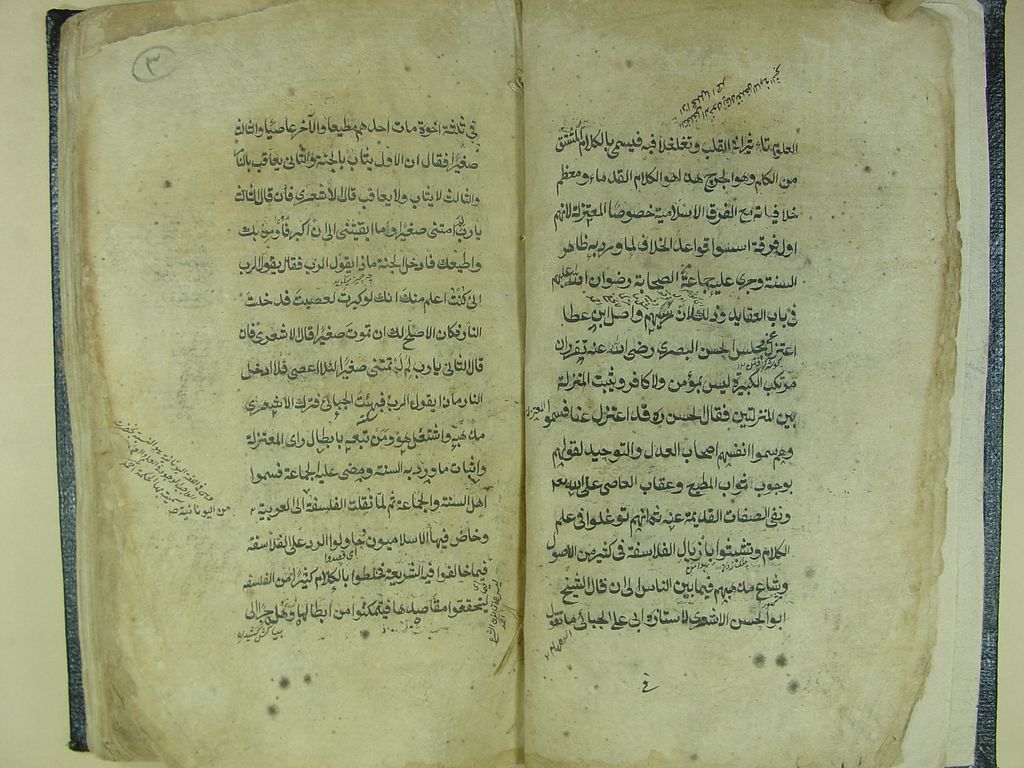 العلوم تاثيرا في القلب وتغلغلا فيه فيسمى بالكلام المشتق
من الكلم وهو الجرح هذا هو الكلام القدماء ومعظم
خلافياته مع الفرق الاسلامية خصوصا المعتزلة لانهم
اول فرقة اسسوا قواعد الخلاف لما ورد به ظاهر
السنة وجرى عليه جماعة الصحابة رضوان الله عليهم
في باب العقايد وذلك لان رئيسهم واصل ابن عطا
اعتزل عن مجلس الحسن البصري رضي الله عنه يقرر ان
مرتكب الكبيرة ليس بمؤمن ولا كافر ويثبت المنزلة
بين المنزلتين فقال الحسن ره قد اعتزل عنا فسموا المعتزلة
وهم سموا انفسهم اصحاب العدل والتوحيد لقولهم
بوجوب ثواب المطيع وعقاب العاصي على الله تعالى
ونفي الصفات القديمة عنه ثم انهم توغلوا في علم
الكلام وتشبثوا باذيال الفلاسفة في كثير من الاصول
وشاع مذهبهم فيما بين الناس الى ان قال الشيخ
ابو الحسن الاشعري لاستاذه ابي علي الجبائي ما تقول
في
٣
في ثلثة اخوة مات احدهم مطيعا والآخر عاصيا والثالث
صغيرا فقال ان الاول يثاب بالجنة والثاني يعاقب بالنار
والثالث لا يثاب ولا يعاقب قال الاشعري فان قال الثالث
يا رب لم امتني صغيرا وما ابقيتني الى ان اكبر فأومن بك
واطيعك فادخل الجنة ماذا يقول الرب فقال يقول الرب
اني كنت اعلم منك انك لو كبرت لعصيت فدخلت
النار فكان الاصلح لك ان تموت صغيرا قال الاشعري فان
قال الثاني يا رب لم لم تمتني صغيرا لئلا اعصي فلا ادخل
النار ماذا يقول الرب فبهت الجبائي فترك الاشعري
مذهبه واشتغل هو ومن تبعه بابطال راى المعتزلة
واثبات ما ورد به السنة ومضى عليه الجماعة فسموا
اهل السنة والجماعة ثم لما نقلت الفلسفة الى العربية
وخاض فيها الاسلاميون حاولوا الرد على الفلاسفة
فيما خالفوا فيه الشريعة فخلطوا بالكلام كثيرا من الفلسفة
ليحققوا مقاصدها فيتمكنوا من ابطالها وهلم جرا الى